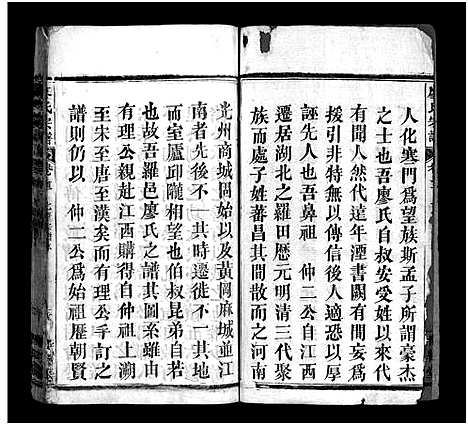 人化寒門爲望族斯孟子所謂豪杰
之士也吾廖氏自叔安受姓以來代
有聞人然代遠年湮書闕有間妄爲
援引非特無以傳信後人適恐以厚
誣先人也吾鼻祖 仲二公自江西
遷居湖北之羅田歷元明清三代聚
族而處子姓蕃昌其間散而之河南
光州商城固始以及黄岡麻城並江
南者先後不一其時遷徙不一其地
而室廬邱隴相望也伯叔昆弟自若
也故吾羅邑廖氏之譜其圖系雖由
有理公親赴江西購得自仲祖上溯
至宋至唐至漢矣而有理公手訂之
譜則仍以 仲二公爲始祖歷朝賢
氏宗譜